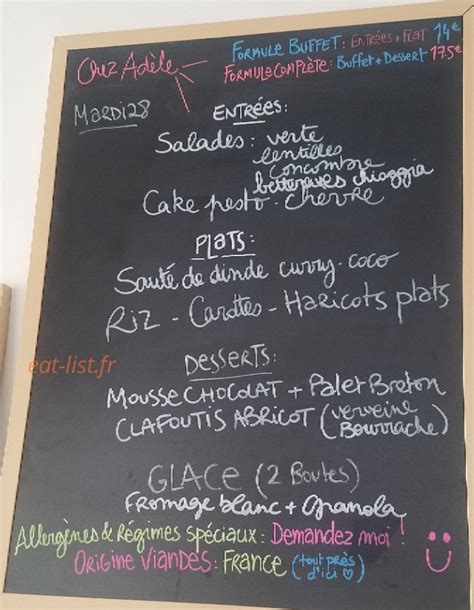 Chez Adèle
FORMULE BUFFET: ENTRÉES + PLAT 14€
FORMULE COMPLÈTE: Buffet + Dessert 17.5€
MARDI 28
ENTRÉES:
Salades: verte
lentilles
concombre
betteraves chioggia
Cake pesto - chèvre
PLATS:
Sauté de dinde curry-coco
Riz - Carottes - Haricots plats
eat-list.fr
DESSERTS:
MOUSSE CHOCOLAT + Palet Breton
CLAFOUTIS ABRICOT (verveine
Bourrache)
GLACE (2 Boules)
Fromage blanc + Granola
Allergènes & Régimes spéciaux: Demandez moi!
ORIGINE VIANDES: FRANCE (tout près
d'ici ♡)